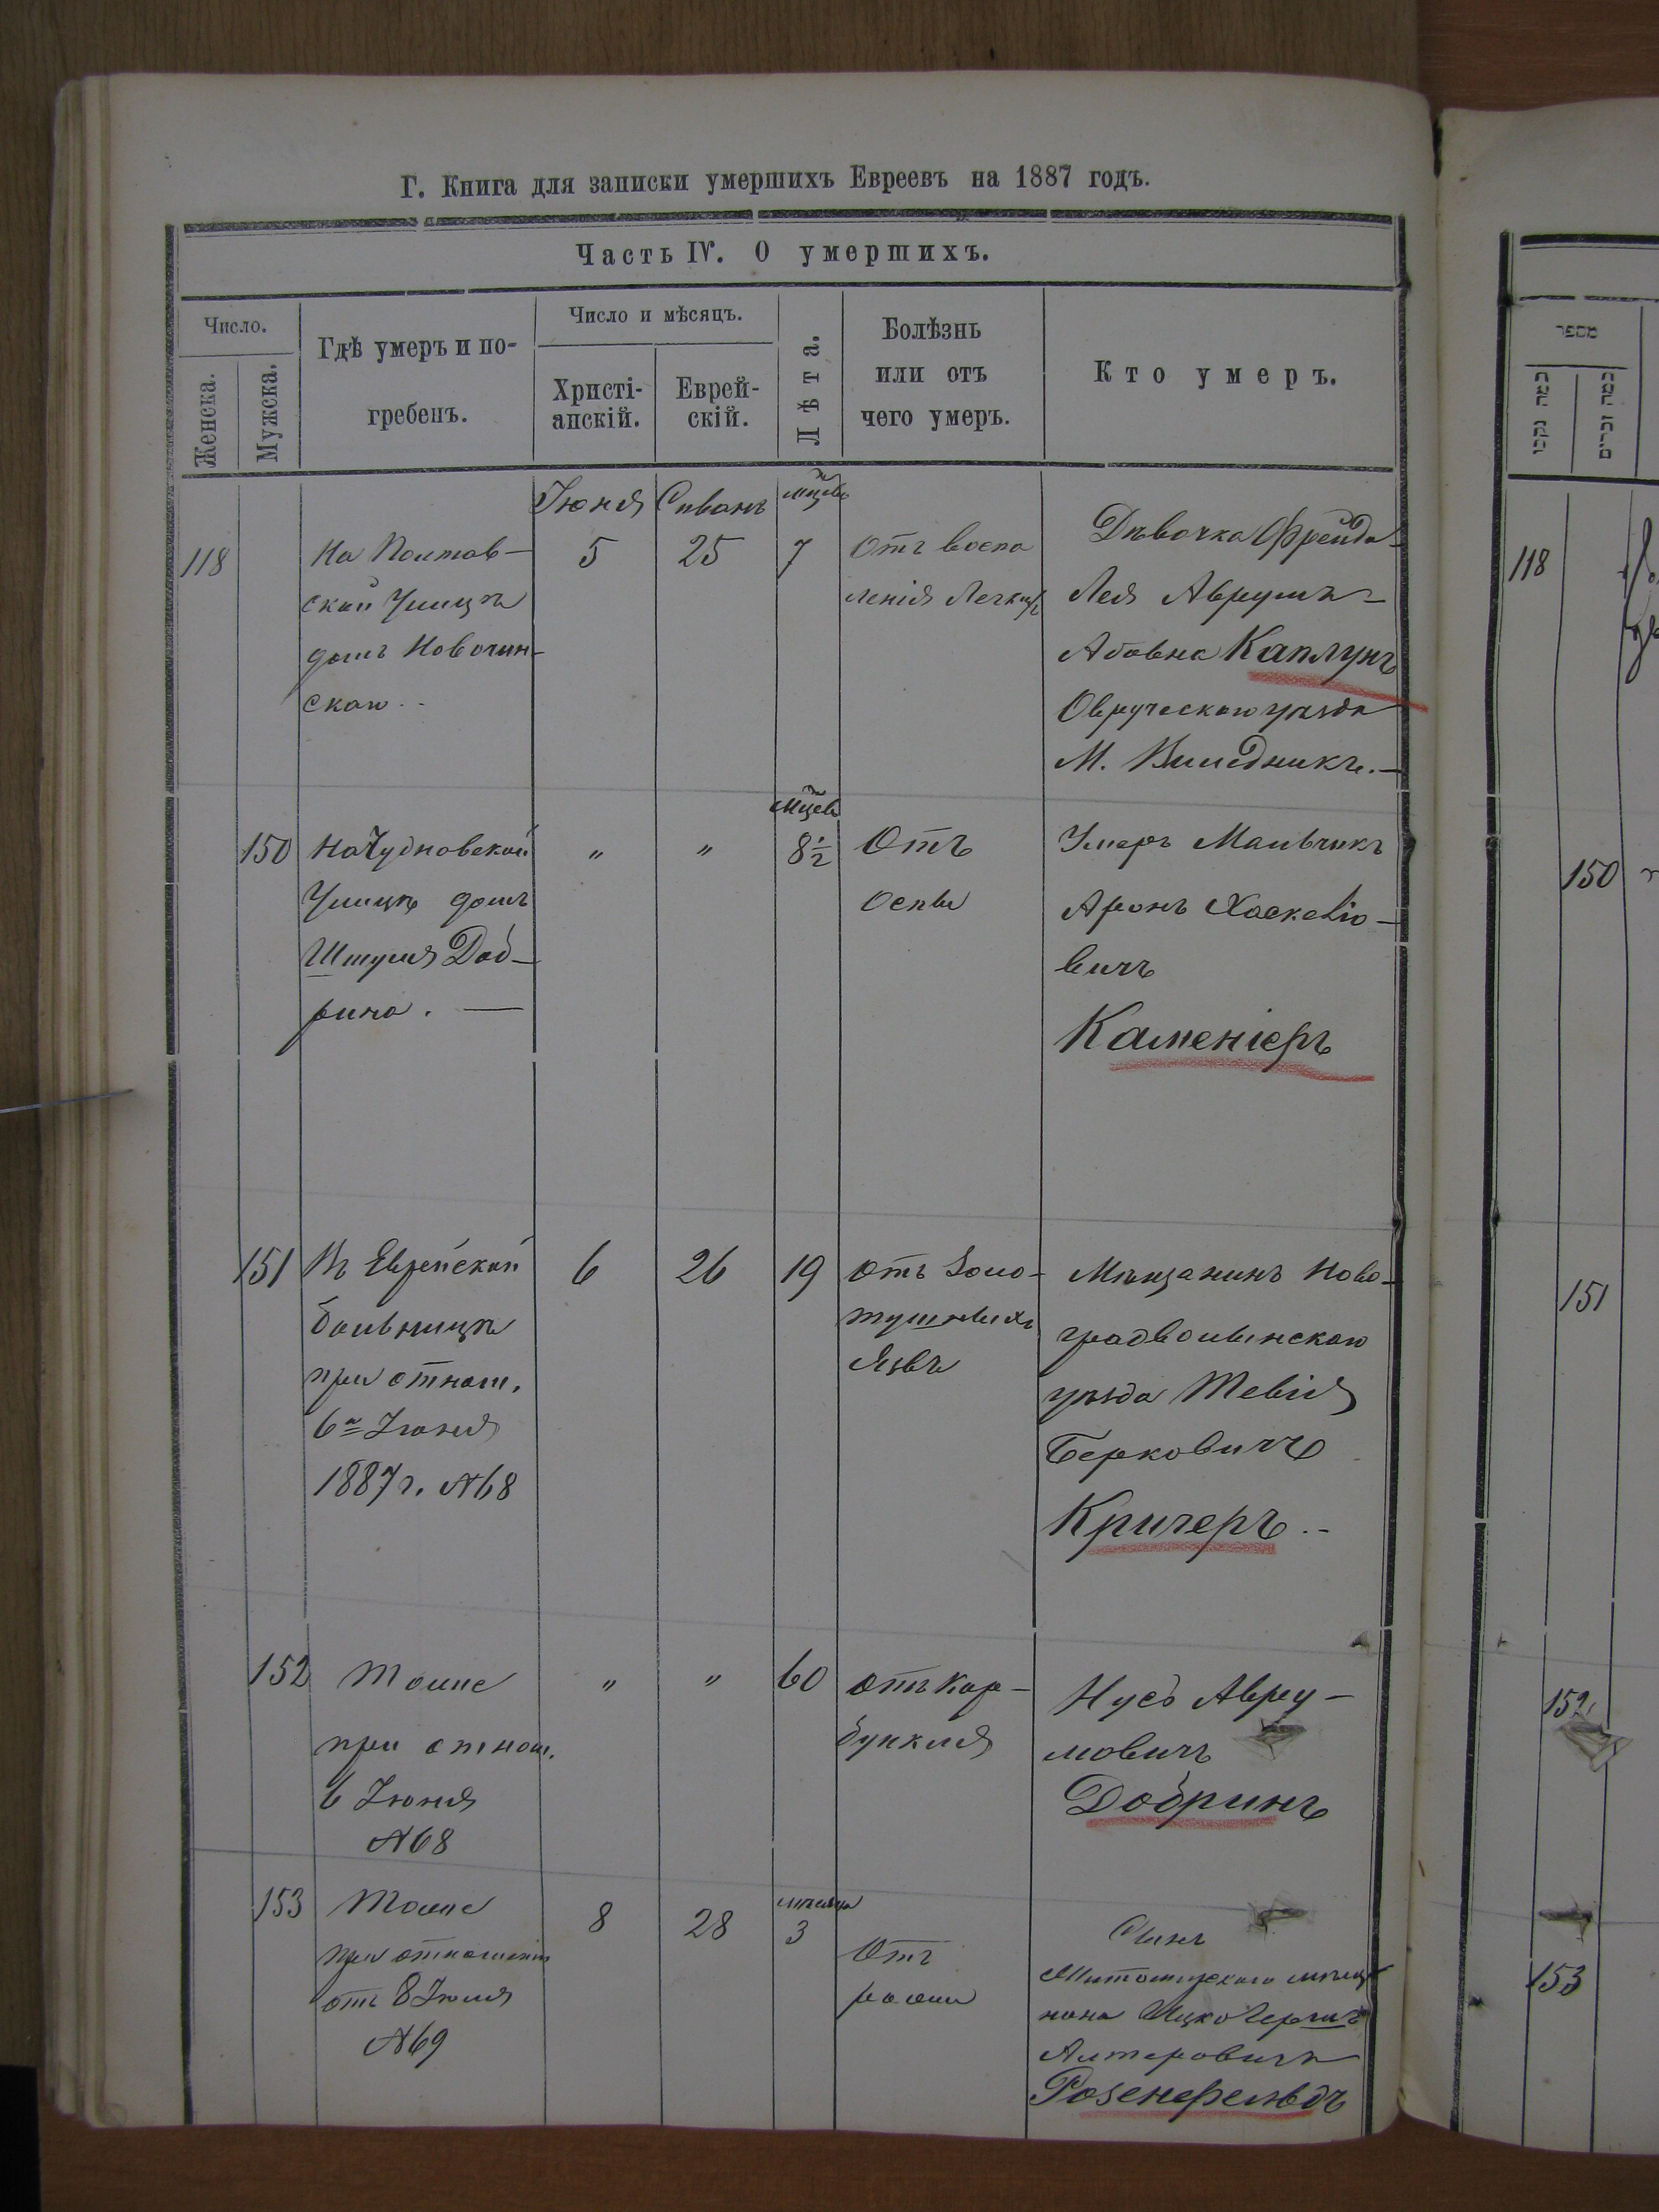 Г. Книга для записки умершихъ Евреевъ на 1887 годъ.
Часть IV. О умершихъ.
Число.
Женска.
Мужска.
Гдѣ умеръ и по-
гребенъ.
Число и мѣсяцъ.
Христі-
анскій.
Еврей-
скій.
Лѣта.
Болѣзнь
или отъ
чего умеръ.
Кто умеръ.
Іюня
Сиванъ
118
На Полтав-
ской Улицѣ
домъ Новочин-
скаго
5
25
7
Отъ воспа
ленія Легкихъ
Дѣвочка Фрейда-
Лея Аврумъ-
Абовна Каплунъ
Овручскаго уѣзда
М. Виледникъ.—
150
На Чудновской
Улицѣ домъ
Штуля Доб-
рина. —
"
"
мцевъ
8½
Отъ
оспы
Умеръ Мальчикъ
Аронъ Хаскеліо-
вичъ
Каменіеръ
151
Въ Еврейской
больницѣ
при отнош.
6го Іюня
1887 г. №68
6
26
19
отъ Золо-
тушныхъ
Язвъ
Мѣщанинъ Ново-
градволынскаго
уѣзда Тевія
Берковичъ
Кричеръ
152
Тоже
при отнош.
6 Іюня
№68
"
"
60
отъ Кар-
бункля
Нусъ Авру-
мовичъ
Добринъ
153
Тоже
при отношеніи
отъ 8 Іюня
№69
8
28
мѣсяца
3
Отъ
рожи
Сынъ
Житомирскаго мѣща
нина Ицко
Алтеровича
Розенфельдъ
מספר
118
150
151
152
153